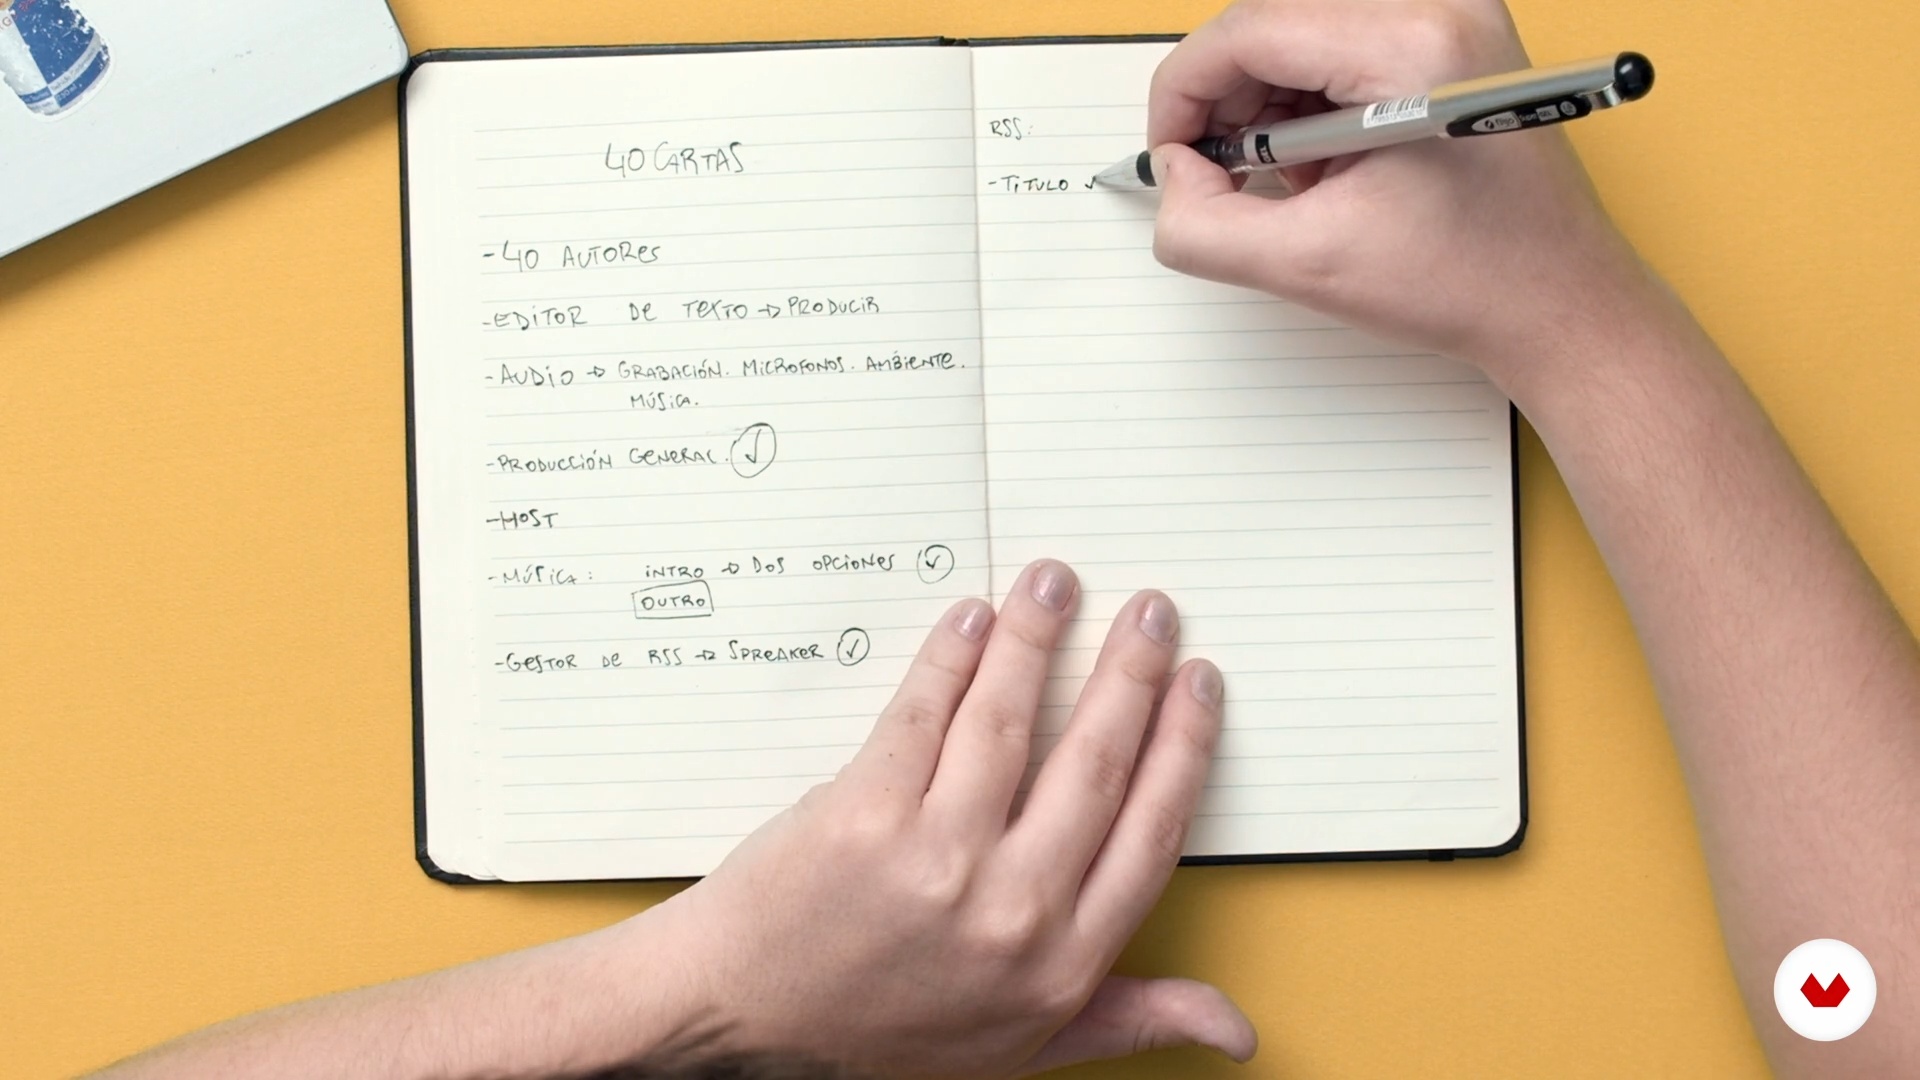 40 CARTAS
- 40 AUTORES
- EDITOR DE TEXTO → PRODUCIR
- AUDIO → GRABACIÓN. MICROFONOS. AMBIENTE.
MÚSICA.
- PRODUCCIÓN GENERAL. ✓
- HOST
- MÚSICA: INTRO → DOS OPCIONES ✓
OUTRO
- GESTOR DE RSS → SPREAKER ✓
RSS:
- TITULO ✓